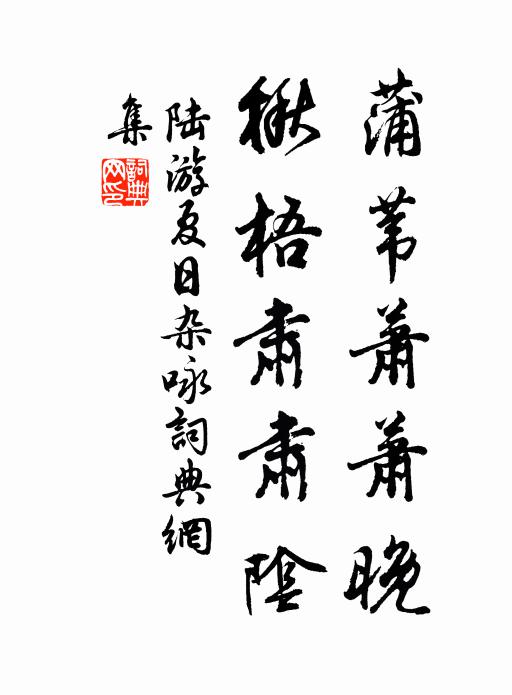 蒲苇萧萧晚
楸梧肃肃阴
陆游夏日杂咏詞典網
集
詞典网印